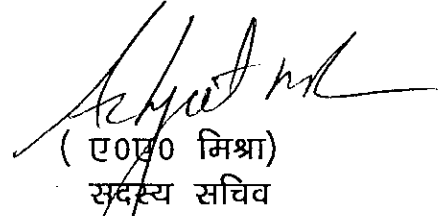 ( ए0ए0 मिश्रा)
सदस्य सचिव